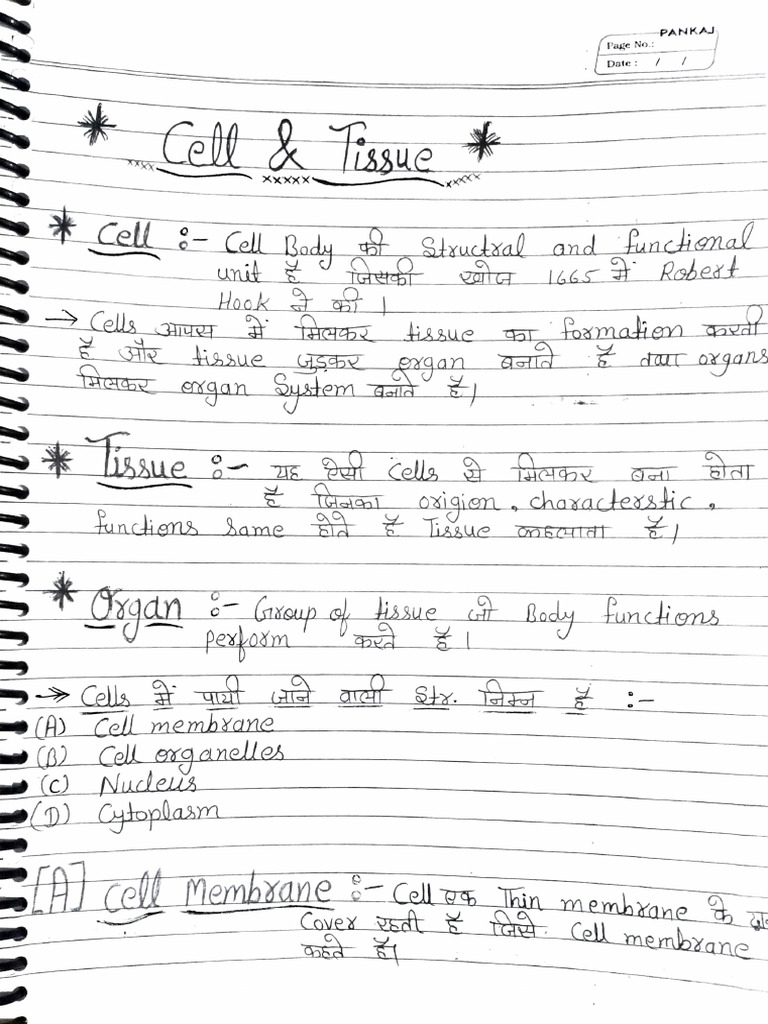 PANKAJ
Page No.:
Date : / /
* Cell & Tissue *
* Cell :- Cell Body की Structral and functional
unit है जिसकी खोज 1665 में Robert
Hook ने की ।
→ Cells आपस में मिलकर tissue का formation करती
है और tissue जुड़कर organ बनाते है तथा organs
मिलकर organ System बनाते है।
* Tissue :- यह ऐसी Cells से मिलकर बना होता
है जिनका origion, characterstic,
functions same होते है Tissue कहलाता है।
* Organ :- Group of tissue जो Body functions
perform करते है ।
→ Cells में पायी जाने वाली Str. निम्न है :-
(A) Cell membrane
(B) Cell organelles
(C) Nucleus
(D) Cytoplasm
[A] Cell Membrane :- Cell एक Thin membrane के
Cover रहती है जिसे Cell membrane
कहते है।